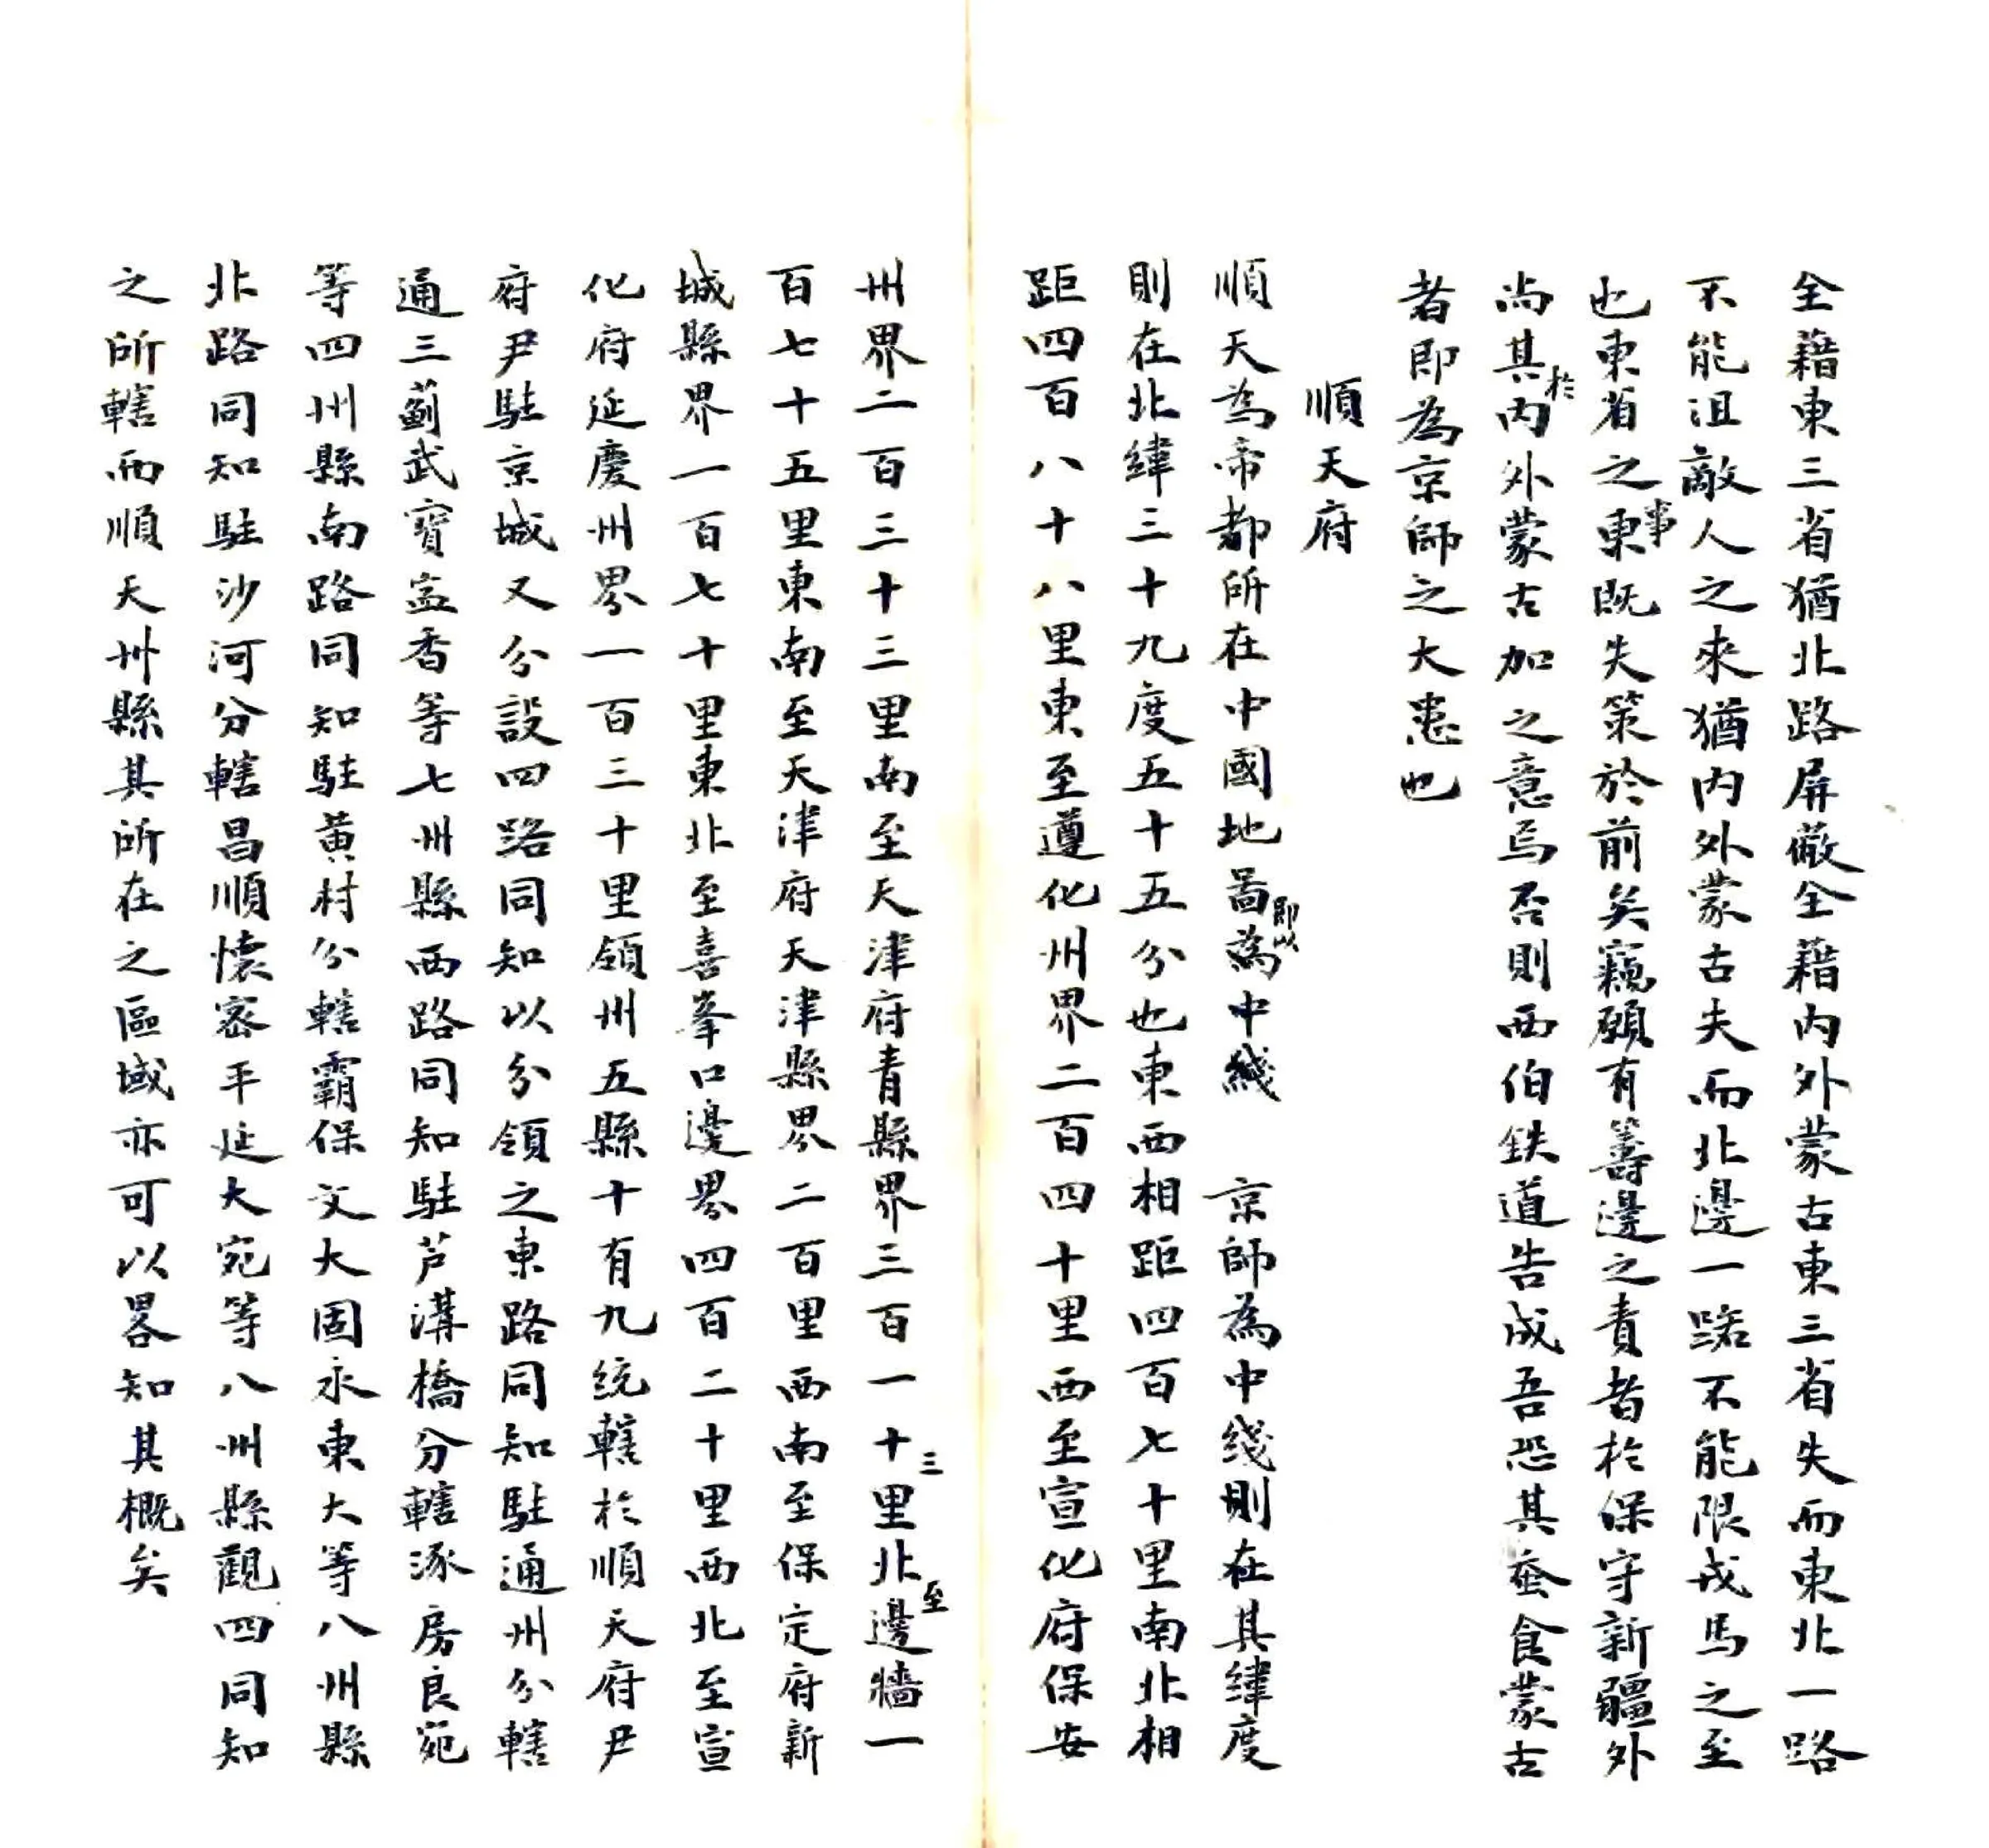 全藉東三省猶北路屏蔽全藉內外蒙古東三省失而東北一路
不能沮敵人之來猶內外蒙古夫而北邊一路不能限戎馬之至
也東省之事東既失策於前矣竊願有籌邊之責者於保守新疆外
尚其於內外蒙古加之意焉否則西伯鉄道告成吾恐其蚕食蒙古
者即為京師之大患也
順天府
順天為帝都所在中國地啚即以為中綫 京師為中綫則在其緯度
則在北緯三十九度五十五分也東西相距四百七十里南北相
距四百八十八里東至遵化州界二百四十里西至宣化府保安
州界二百三十三里南至天津府青縣界三百一十三里北至邊牆一
百七十五里東南至天津府天津縣界二百里西南至保定府新
城縣界一百七十里東北至喜峯口邊界四百二十里西北至宣
化府延慶州界一百三十里領州五縣十有九統轄於順天府尹
府尹駐京城又分設四路同知以分領之東路同知駐通州分轄
通三薊武寶寍香等七州縣西路同知駐芦溝橋分轄涿房良宛
等四州縣南路同知駐黃村分轄霸保文大固永東大等八州縣
北路同知駐沙河分轄昌順懷密平延大宛等八州縣觀四同知
之所轄而順天州縣其所在之區域亦可以畧知其概矣